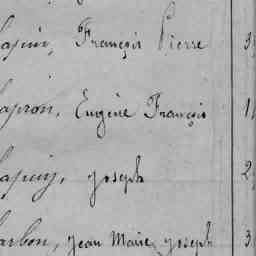 François Pierre 3
apron, Eugène François 1
Joseph 2
arbon, Jean Marie Joseph 3